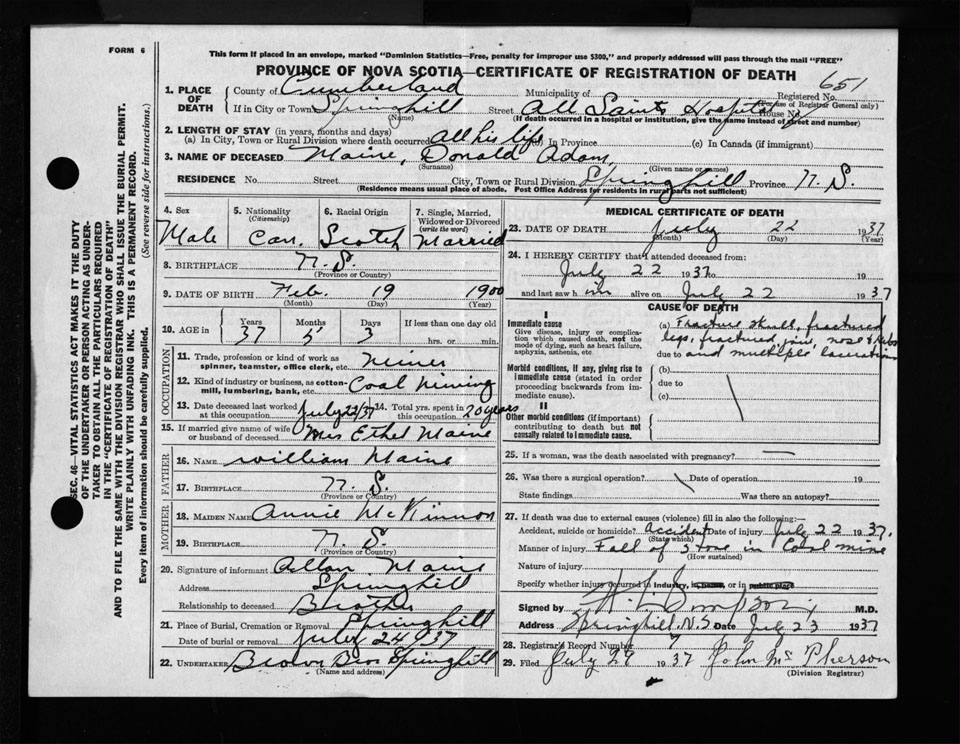 FORM 6
This form if placed in an envelope, marked "Dominion Statistics—Free, penalty for improper use $300," and properly addressed will pass through the mail "FREE"
PROVINCE OF NOVA SCOTIA—CERTIFICATE OF REGISTRATION OF DEATH
SEC. 46—VITAL STATISTICS ACT MAKES IT THE DUTY
OF THE UNDERTAKER OR PERSON ACTING AS UNDER-
TAKER TO OBTAIN ALL THE PARTICULARS REQUIRED
IN THE "CERTIFICATE OF REGISTRATION OF DEATH"
AND TO FILE THE SAME WITH THE DIVISION REGISTRAR WHO SHALL ISSUE THE BURIAL PERMIT.
WRITE PLAINLY WITH UNFADING INK. THIS IS A PERMANENT RECORD.
Every item of information should be carefully supplied. (See reverse side for instructions.)
1. PLACE OF DEATH
County of Cumberland Municipality of Registered No. 651
(For use of Registrar General only)
If in City or Town Springhill Street All Saints Hospital House No.
(Name) (If death occurred in a hospital or institution, give the name instead of street and number)
2. LENGTH OF STAY (in years, months and days)
(a) In City, Town or Rural Division where death occurred all his life (b) In Province (c) In Canada (if immigrant)
3. NAME OF DECEASED Maine, Donald Adam,
(Surname) (Given name or names)
RESIDENCE No. Street City, Town or Rural Division Springhill Province N. S.
(Residence means usual place of abode. Post Office Address for residents in rural parts not sufficient)
4. Sex 5. Nationality (Citizenship) 6. Racial Origin 7. Single, Married, Widowed or Divorced (write the word)
Male Can. Scotch Married
8. BIRTHPLACE N. S.
(Province or Country)
9. DATE OF BIRTH Feb. 19 1900
(Month) (Day) (Year)
10. AGE in Years Months Days If less than one day old
37 5 3 hrs. or min.
OCCUPATION
11. Trade, profession or kind of work as spinner, teamster, office clerk, etc. Miner
12. Kind of industry or business, as cotton-mill, lumbering, bank, etc. Coal Mining
13. Date deceased last worked at this occupation July 22/37 14. Total yrs. spent in this occupation 20 years
15. If married give name of wife or husband of deceased Mrs Ethel Maine
FATHER
16. NAME William Maine
17. BIRTHPLACE N. S.
(Province or Country)
MOTHER
18. MAIDEN NAME Annie McKinnon
19. BIRTHPLACE N. S.
(Province or Country)
20. Signature of informant Allan Maine
Address Springhill
Relationship to deceased Brother
21. Place of Burial, Cremation or Removal Springhill
Date of burial or removal July 24 1937
22. UNDERTAKER Brown Bros Springhill
(Name and address)
MEDICAL CERTIFICATE OF DEATH
23. DATE OF DEATH July 22 1937
(Month) (Day) (Year)
24. I HEREBY CERTIFY that I attended deceased from:
July 22 1937 to 19
and last saw him alive on July 22 1937
CAUSE OF DEATH
I
Immediate cause
Give disease, injury or complication which caused death, not the mode of dying, such as heart failure, asphyxia, asthenia, etc.
(a) Fracture skull, fractured
legs, fractured jaw, nose & ribs
due to and multiple laceration
Morbid conditions, if any, giving rise to immediate cause (stated in order proceeding backwards from immediate cause).
(b)
due to
(c)
II
Other morbid conditions (if important) contributing to death but not causally related to immediate cause.
25. If a woman, was the death associated with pregnancy?
26. Was there a surgical operation? Date of operation 19
State findings Was there an autopsy?
27. If death was due to external causes (violence) fill in also the following:
Accident, suicide or homicide? Accident Date of injury July 22 1937.
(State which)
Manner of injury Fall of stone in Coal mine
(How sustained)
Nature of injury
Specify whether injury occurred in industry, in home, or in public place
Signed by M.D.
Address Springhill, N.S. Date July 23 1937
28. Registrar's Record Number 7
29. Filed July 29 1937 John McPherson
(Division Registrar)